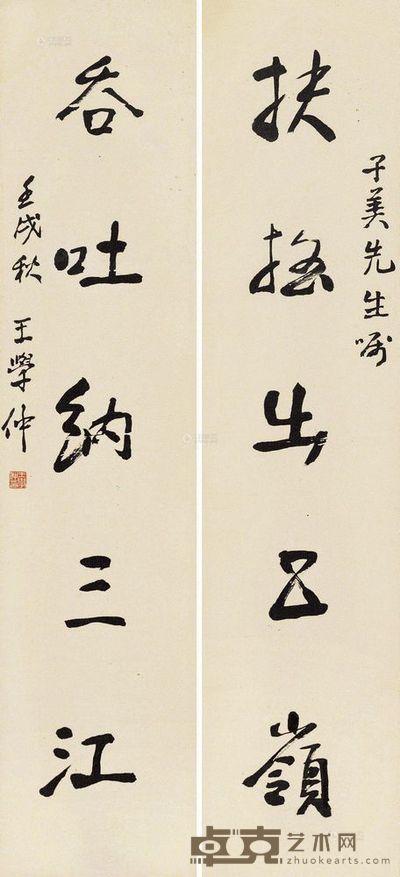 子美先生嘱
扶摇出五嶺
吞吐納三江
壬戌秋 王學仲
卓克艺术网
zhuokearts.com